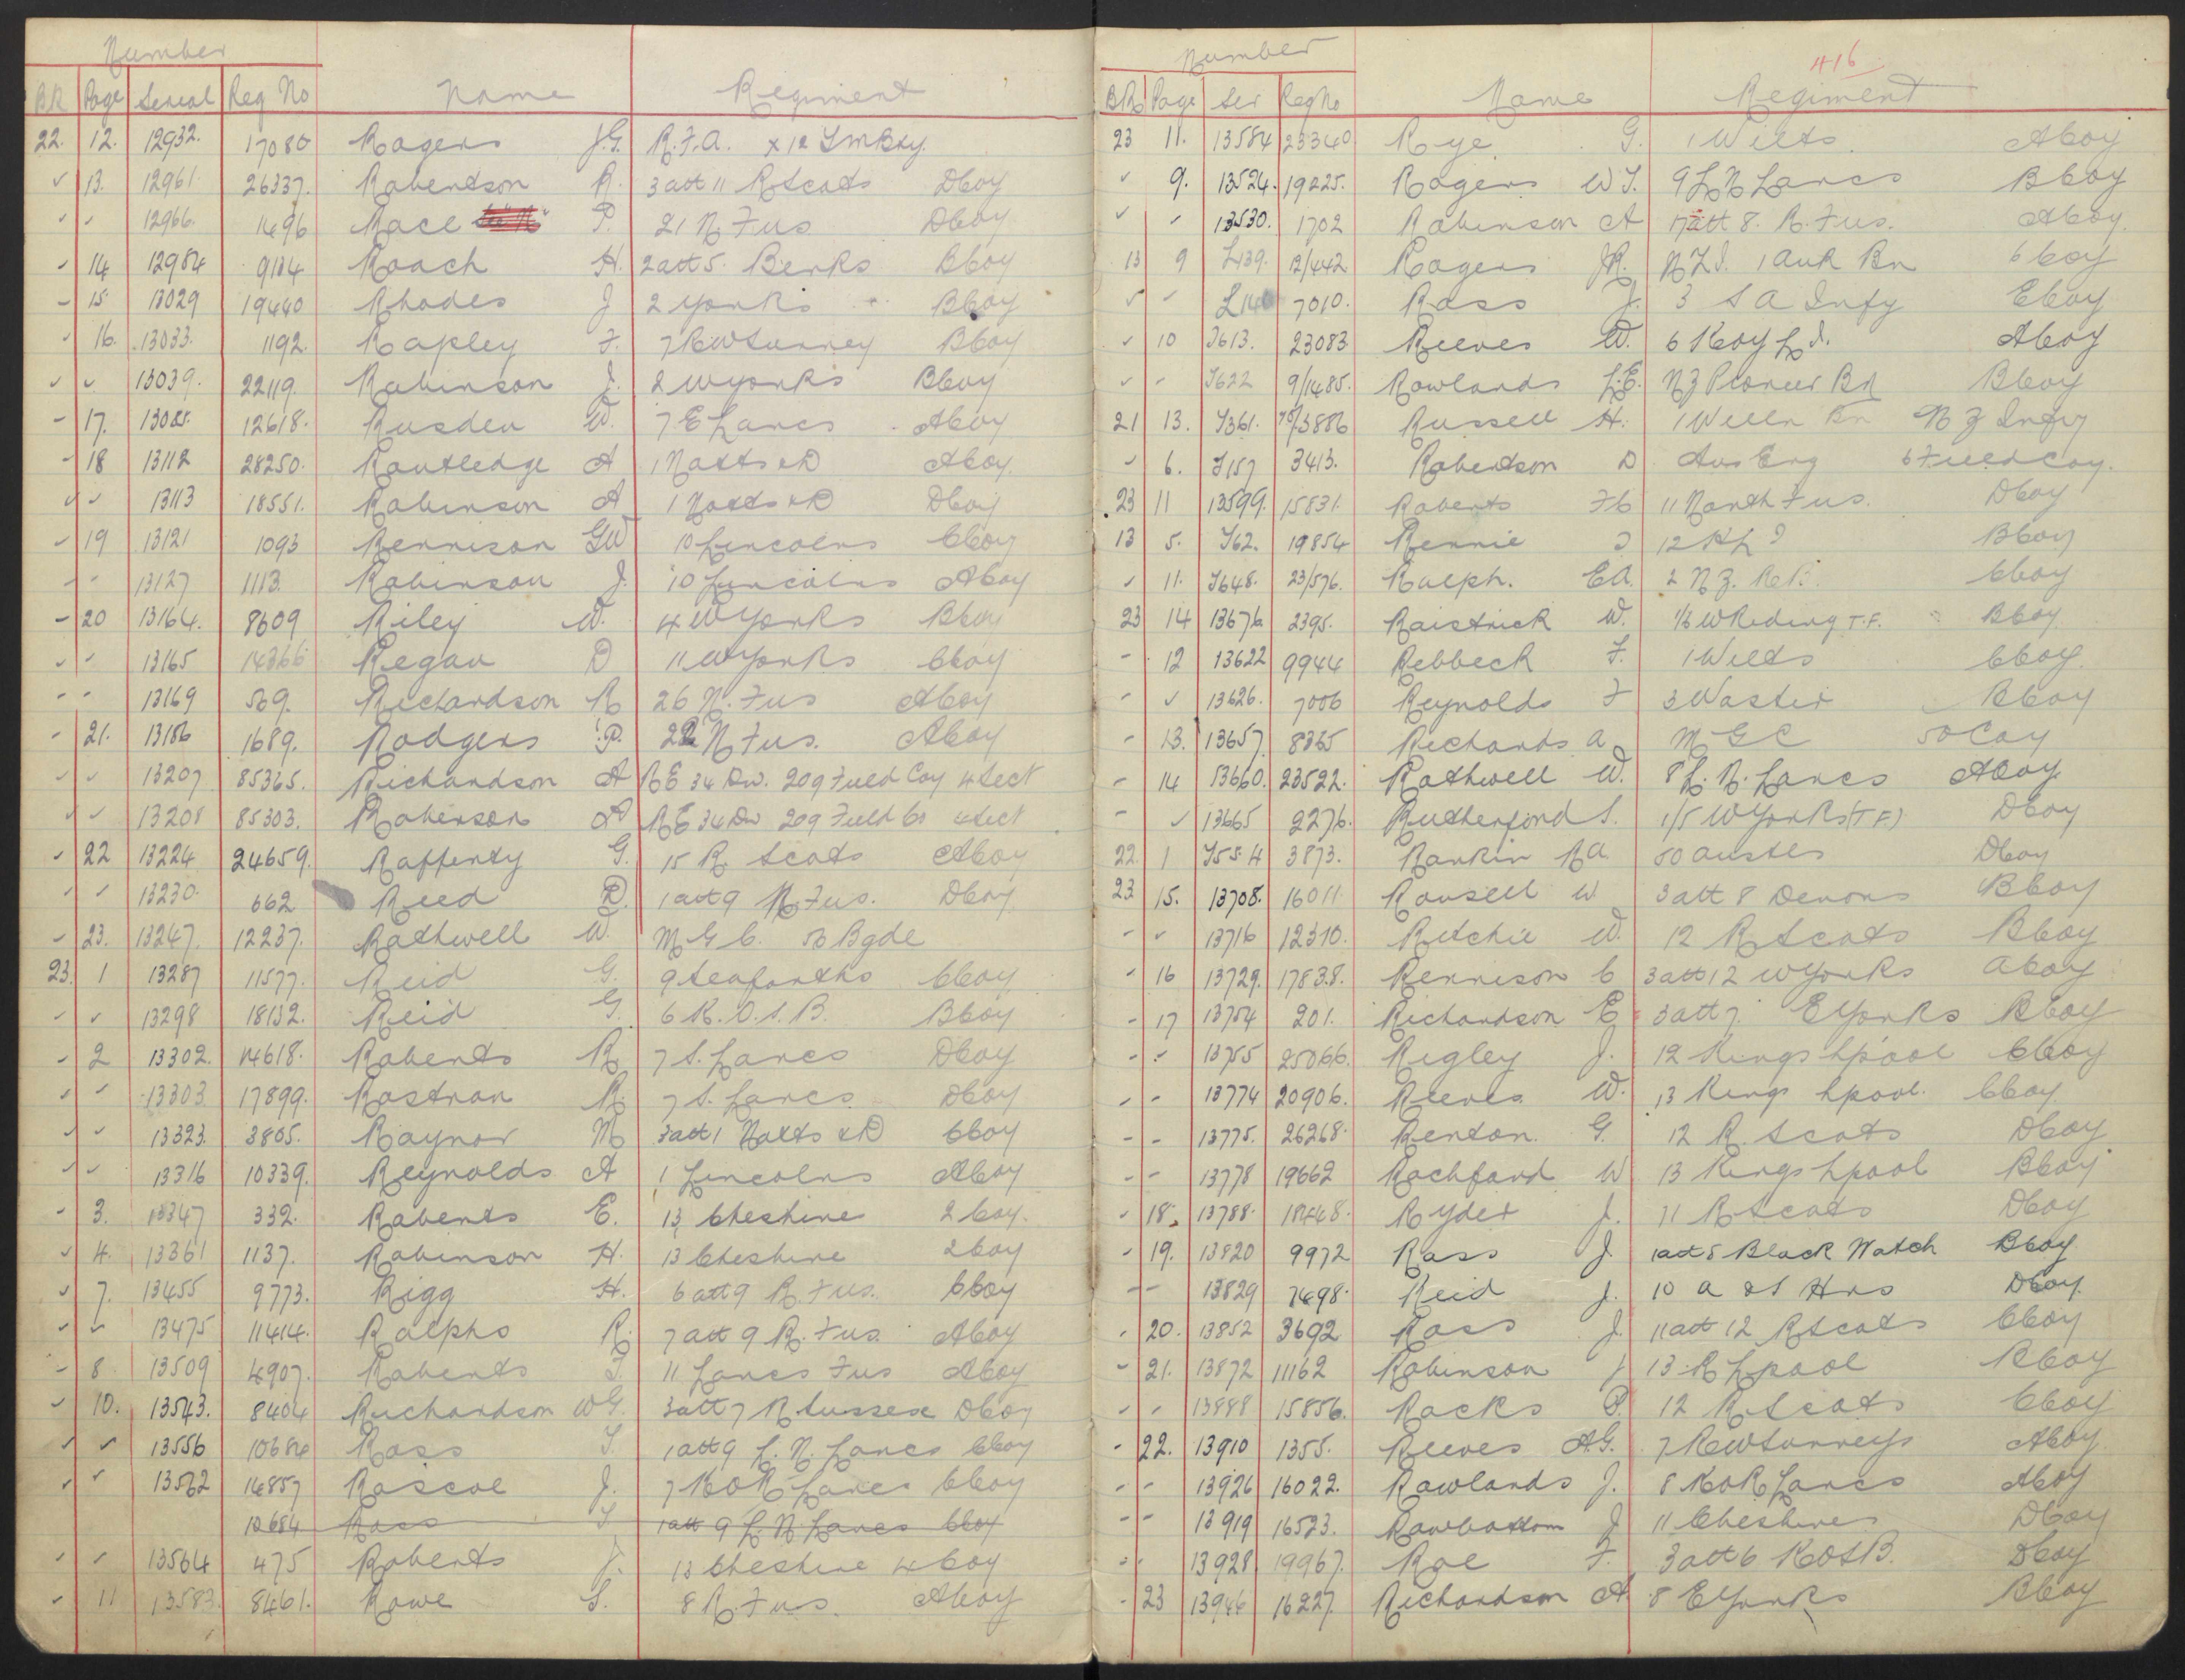 Number
BK Page Serial Reg No Name Regiment
22. 12. 12932. 17080 Rogers J.G. R.F.A. X12 TMBty.
✓ 13. 12961. 26337. Robertson R. 3 att 11 R Scots DCoy
✓ ✓ 12966. 1496 Race P. 21 N. Fus DCoy.
✓ 14 12984 9184 Roach H. 2 att 5. Berks BCoy
- 15 13029 19440 Rhodes J 2 Yorks BCoy
✓ 16. 13033. 1192. Rapley F. 7 RW Surrey BCoy
✓ ✓ 13039. 22119. Robinson J. 2 W Yorks BCoy
- 17. 13085. 12618. Rusden W. 7 E Lancs ACoy
- 18 13112 28250. Routledge A 1 Notts & D ACoy.
✓ ✓ 13113 18551. Robinson A 1 Notts & D DCoy
- 19 13121 1093 Rennison GW 10 Lincolns CCoy
- - 13127 1113. Robinson J. 10 Lincolns ACoy
- 20 13164. 8609 Riley W. 4 W Yorks BCoy
✓ - 13165 14366 Regan D 11 W Yorks CCoy
- - 13169 569. Richardson R 26 N. Fus ACoy
- 21. 13186 1689. Rodgers P. 22 N Fus. ACoy
✓ ✓ 13207 85365. Richardson A RE 34 Div. 209 Field Coy 4 Sect
✓ ✓ 13208 85303. Roberson A RE 34 Div 209 Field Co 4 Sect
✓ 22 13224 24659. Rafferty G. 15 R. Scots ACoy
✓ ✓ 13230. 662 Reed R. 1 att 9 N. Fus. DCoy.
- 23. 13247. 12237. Rothwell W. M G C. 50 Bgde
23. 1 13287 11577. Reid G. 9 Seaforths CCoy.
✓ ✓ 13298 18132. Reid G. 6 K.O.S.B. BCoy
- 2 13302. 14618. Roberts R. 7 S. Lancs DCoy
✓ - 13303 17899. Rostron R. 7 S. Lancs. DCoy
✓ ✓ 13323. 3805. Raynor M 3 att 1 Notts & D CCoy
✓ ✓ 13316 10339. Reynolds A 1 Lincolns ACoy
- 3. 13347 332. Roberts E. 13 Cheshire 2 Coy.
✓ 4. 13361 1137. Robinson H. 13 Cheshire 2 Coy
✓ 7. 13455 9773. Rigg H. 6 att 9 R. Fus. CCoy
✓ ✓ 13475 11414. Ralphs R. 7 att 9 R. Fus. ACoy
- 8 13509 4907. Roberts T. 11 Lancs Fus ACoy
✓ 10. 13543. 8404 Richardson WG. 3 att 7 R Sussex DCoy
✓ ✓ 13556 10684 Ross T. 1 att 9 L. N. Lancs CCoy
✓ ✓ 13562 14857 Roscoe J. 7 KOR Lancs CCoy
10684 Ross T 1 att 9 L. N. Lancs CCoy
✓ ✓ 13564 475 Roberts J. 13 Cheshire 4 Coy
- 11 13583. 8461. Rowe S. 8 R. Fus. ACoy
Number 416
BR Page Ser Reg No Name Regiment
23 11. 13584 23340 Rye G. 1 Wilts. ACoy
✓ 9. 13524. 19225. Rogers W T. 9 L N Lancs BCoy
✓ - 13530. 1702 Robinson A 17 att 8. R. Fus. ACoy.
13 9 L139. 12/442 Rogers JR. N Z I. 1 Auk Bn 6 Coy
✓ - 7010. Ross J. 3 S A Infy ECoy
✓ 10 J613. 23083 Reeves W. 6 KOY L I. ACoy
✓ - J622 9/1485. Rowlands L.E. NZ Pioneer Bn BCoy
21 13. J361. 10/3886 Russell H. 1 Welln Bn N Z Infy
✓ 6. J157 3413. Robertson D Aus Eng 6 Field Coy.
23 11 13599. 15831. Roberts FC 11 North Fus. DCoy
13 5. J62. 19854 Rennie J 12 HLI BCoy
✓ 11. J648. 23/576. Ralph. EA. 2 N Z. R.B. CCoy
23 14 13676. 2395. Raistrick W. 1/6 W Riding T.F. BCoy
- 12 13622 9944 Rebbeck F. 1 Wilts CCoy.
- ✓ 13626. 7006 Reynolds F 3 Worster BCoy
- 13. 13657. 8365 Richards A M G C 50 Coy
- 14 13660. 23522. Rothwell W. 8 L. N. Lancs ACoy.
- ✓ 13665 2276. Rutherford S. 1/5 W Yorks (T F) DCoy
22. 1 J554 3873. Rankin RA 50 Austls DCoy
23 15. 13708. 16011 Rousell W 3 att 8 Devons BCoy
- ✓ 13716 12310. Ritchie W. 12 R Scots BCoy
✓ 16 13729. 17838. Rennison C 3 att 12 W Yorks ACoy
- 17 13754 201. Richardson E 3 att 7. E Yorks BCoy
- - 13755 25066. Rigley J. 12 Kings Lpool CCoy
- - 13774 20906. Reeves W. 13 Kings Lpool. CCoy.
- - 13775. 26268. Renton. G. 12 R. Scots DCoy
- - 13778 19662 Rochford W 13 Kings Lpool BCoy
- 18. 13788. 18448. Ryder J. 11 R Scots DCoy
- 19. 13820 9972 Ross J. 1 att 8 Black Watch BCoy
- - 13829 7498. Reid J. 10 A & S Hrs DCoy.
- 20. 13852 3692 Ross J. 11 att 12 R Scots CCoy
- 21. 13872 11162 Robinson J 13 K Lpool BCoy
- - 13888 15856. Rocks P. 12 R Scots CCoy
- 22. 13910 1355. Reeves A.G. 7 RW Surreys ACoy
- - 13926 16022. Rowlands J. 8 KOR Lancs ACoy
- - 13919 16523. Rowbottom J 11 Cheshires DCoy
- - 13928 19967. Roe F. 3 att 6 KOSB. DCoy
- 23 13946 16227. Richardson A. 8 E Yorks BCoy